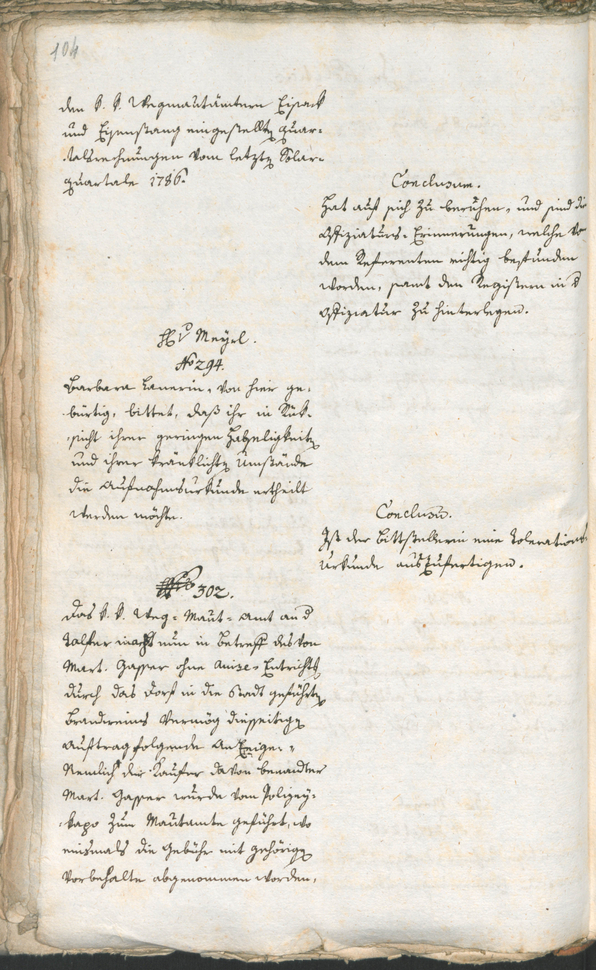 104
den k. k. Wegmautämtern Eisack
und Eisenstang eingestellte Quar-
talsrechnungen vom letzten Solar-
quartale 1786.
Conclusum.
Hat auf sich zu beruhen, und sind die
Offiziaturs-Erinnerungen, welche von
dem Referenten richtig befunden
worden, samt den Registern in d
Offiziatur zu hinterlegen.
Hr. v Meyrl.
No 294.
Barbara Lanerin, von hier ge-
bürtig, bittet, daß ihr in Rük-
sicht ihrer geringen Habseligkeiten
und ihrer kränklichten Umstände
die Aufnahmsurkunde ertheilt
werden möchte.
Conclusum.
Ist der Bittstellerin eine Tolerations
Urkunde auszufertigen.
No 302.
Das k. k. Weg-Maut-Amt an d
Talfer macht nun in Betreff des von
Mart. Gasser ohne Entrichtg
durch das Dorf in die Stadt geführten
Brandweins vermög diesseitigen
Auftrag folgende Anzeige:
Nemlich der Kaufer davon benandter
Mart. Gasser wurde vom Polizey-
kapo zum Mautamte geführt, wo
einsmals die Gebühr mit gehörigen
Vorbehalte abgenommen worden,